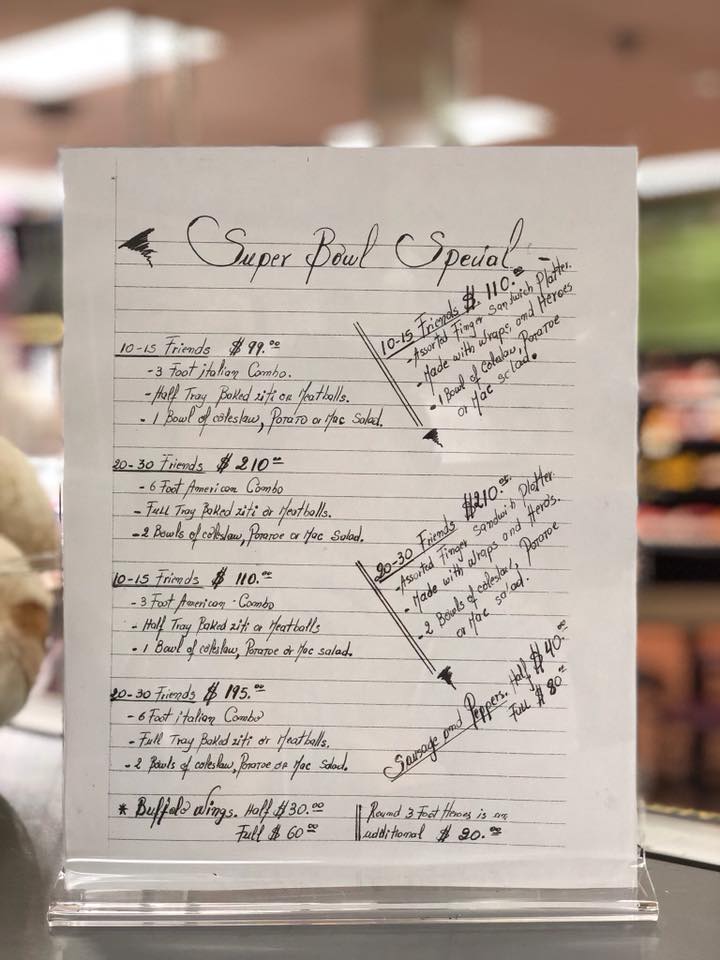 Super Bowl Special
10-15 Friends $99.00
-3 Foot italian Combo.
-Half Tray Baked ziti or Meatballs.
- 1 Bowl of coleslaw, Potato or Mac Salad.
20-30 Friends $210.00
-6 Foot American Combo
- Full Tray Baked ziti or Meatballs.
-2 Bowls of coleslaw, Potatoe or Mac Salad.
10-15 Friends $110.00
-3 Foot American Combo
- Half Tray Baked ziti or Meatballs
- 1 Bowl of coleslaw, Potatoe or Mac salad.
20-30 Friends $195.00
-6 Foot italian Combo
- Full Tray Baked ziti or Meatballs.
- 2 Bowls of coleslaw, Potatoe or Mac Salad.
* Buffalo wings. Half $30.00
Full $60.00
10-15 Friends $110.00
-Assorted Finger Sandwich Platter.
-Made with wraps, and Heroes
-1 Bowl of Coleslaw, Potatoe
or Mac salad.
20-30 Friends $210.00
-Assorted Finger Sandwich Platter
-Made with wraps and Heros.
-2 Bowls of coleslaw, Potatoe
or Mac salad.
Sausage and Peppers. Half $40.00
Full $80.00
Round 3 Foot Heroes is an
additional $20.00